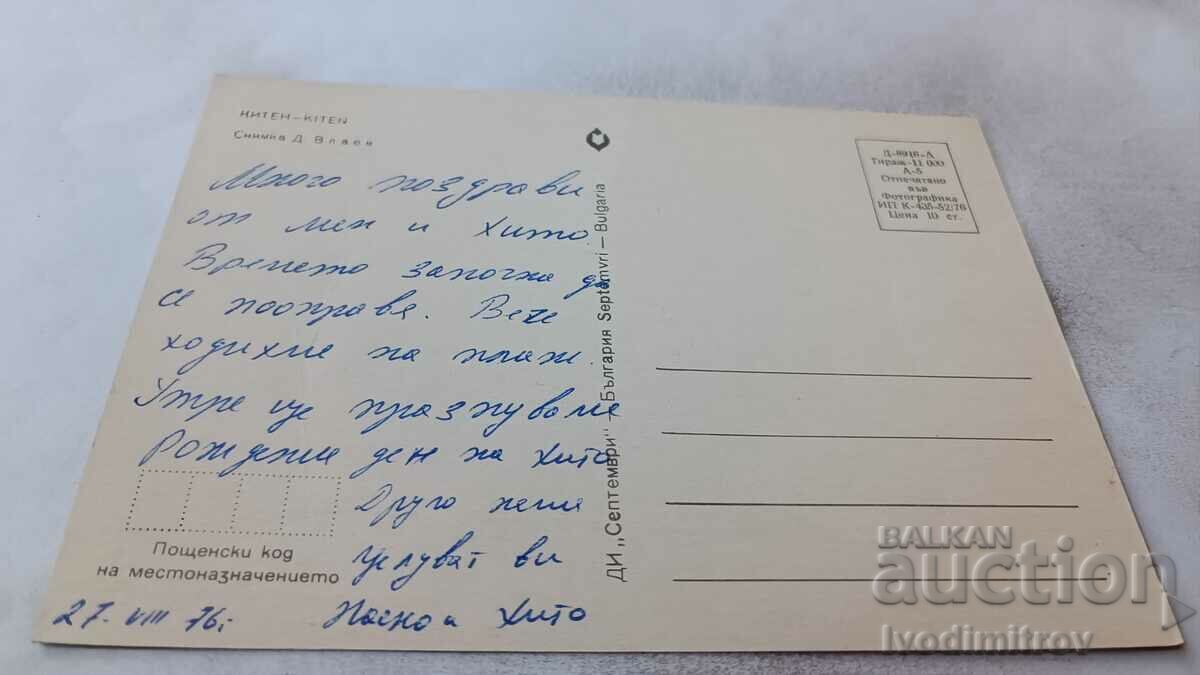 КИТЕН – KITEN
Снимка Д. Влаев
Много поздрави
от мен и Хито.
Времето започна да
се пооправя. Вече
ходихме на плаж.
Утре ще празнуваме
Рождения ден на Хито
Друго няма
Целуват ви
Наско и Хито
27. VIII 76г
Пощенски код
на местоназначението
ДИ „Септември" – България Septemvri – Bulgaria
Д-8916-А
Тираж-11 000
А-5
Отпечатано
във
Фотографика
ИП К-435-52/76
Цена 10 ст.
BALKAN
auction
Ivodimitrov